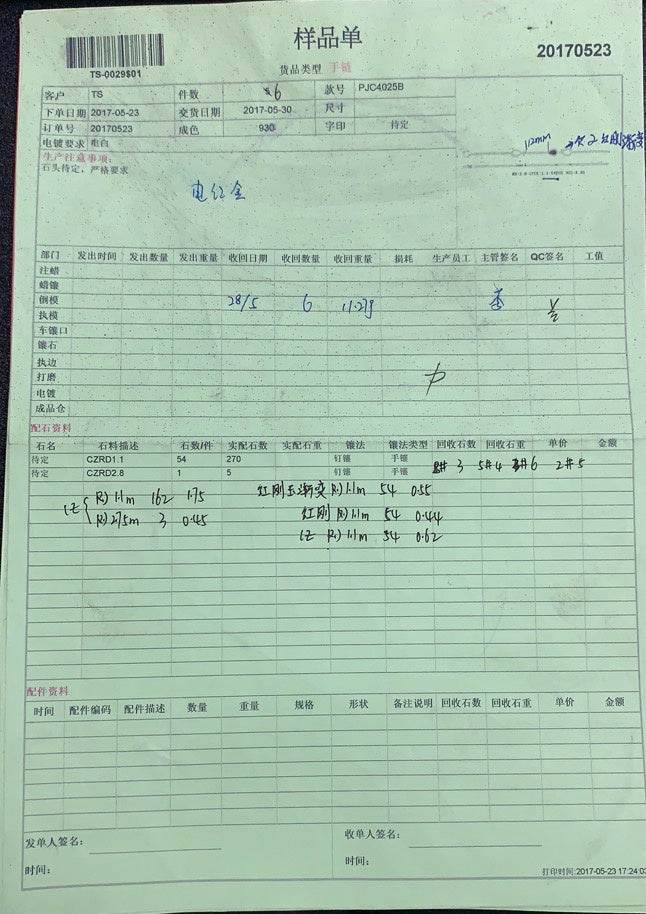 样品单
TS-0029$01
货品类型 手链
20170523
客户 TS 件数 6 款号 PJC4025B
下单日期 2017-05-23 交货日期 2017-05-30 尺寸
订单号 20170523 成色 930 字印 待定
电镀要求 电白
生产注意事项:
石头待定，严格要求
电红金
112mm
部门 发出时间 发出数量 发出重量 收回日期 收回数量 收回重量 损耗 生产员工 主管签名 QC签名 工值
注蜡
蜡镶
倒模 28/5 6 11.27g
执模
车镶口
镶石
执边
打磨
电镀
成品仓
配石资料
石名 石料描述 石数/件 实配石数 实配石重 镶法 镶法类型 回收石数 回收石重 单价 金额
待定 CZRD1.1 54 270 钉镶 手镶
待定 CZRD2.8 1 5 钉镶 手镶
3 5#4 6 2#5
R) 1.1m 162 1.75 红刚玉渐变 R) 1.1m 54 0.55
R) 2.75m 3 0.45 红刚 R) 1.1m 54 0.44
R) 1.1m 54 0.62
配件资料
时间 配件编码 配件描述 数量 重量 规格 形状 备注说明 回收石数 回收石重 单价 金额
发单人签名: 收单人签名:
时间: 时间:
打印时间:2017-05-23 17:24:03